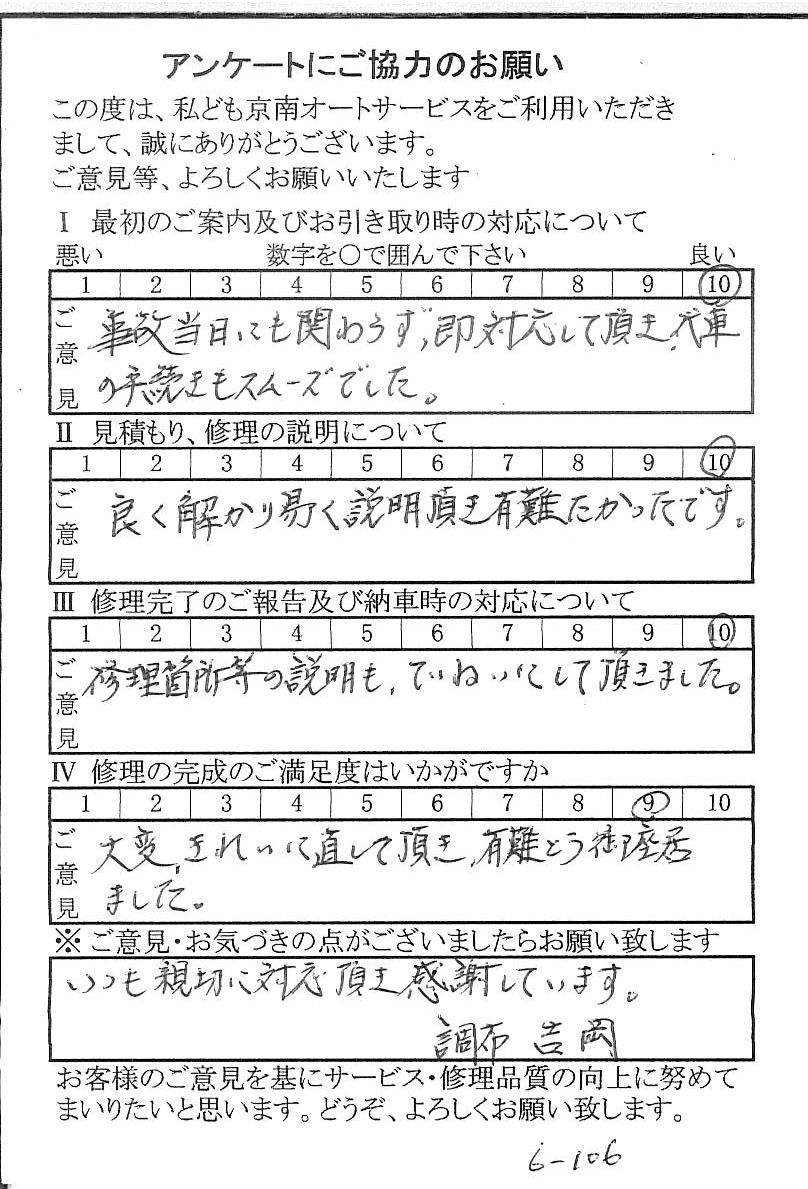 アンケートにご協力のお願い
この度は、私ども京南オートサービスをご利用いただき
まして、誠にありがとうございます。
ご意見等、よろしくお願いいたします
Ⅰ 最初のご案内及びお引き取り時の対応について
悪い 数字を○で囲んで下さい 良い
1 2 3 4 5 6 7 8 9 10
ご意見
事故当日にも関わらず、即対応して頂き、代車
の手続きもスムーズでした。
Ⅱ 見積もり、修理の説明について
1 2 3 4 5 6 7 8 9 10
ご意見
良く解かり易く説明頂き有難たかったです。
Ⅲ 修理完了のご報告及び納車時の対応について
1 2 3 4 5 6 7 8 9 10
ご意見
修理箇所等の説明も、ていねいにして頂きました。
Ⅳ 修理の完成のご満足度はいかがですか
1 2 3 4 5 6 7 8 9 10
ご意見
大変、きれいに直して頂き、有難とう御座居
ました。
※ ご意見・お気づきの点がございましたらお願い致します
いつも親切に対応頂き感謝しています。
調布 吉岡
お客様のご意見を基にサービス・修理品質の向上に努めて
まいりたいと思います。どうぞ、よろしくお願い致します。
6-106